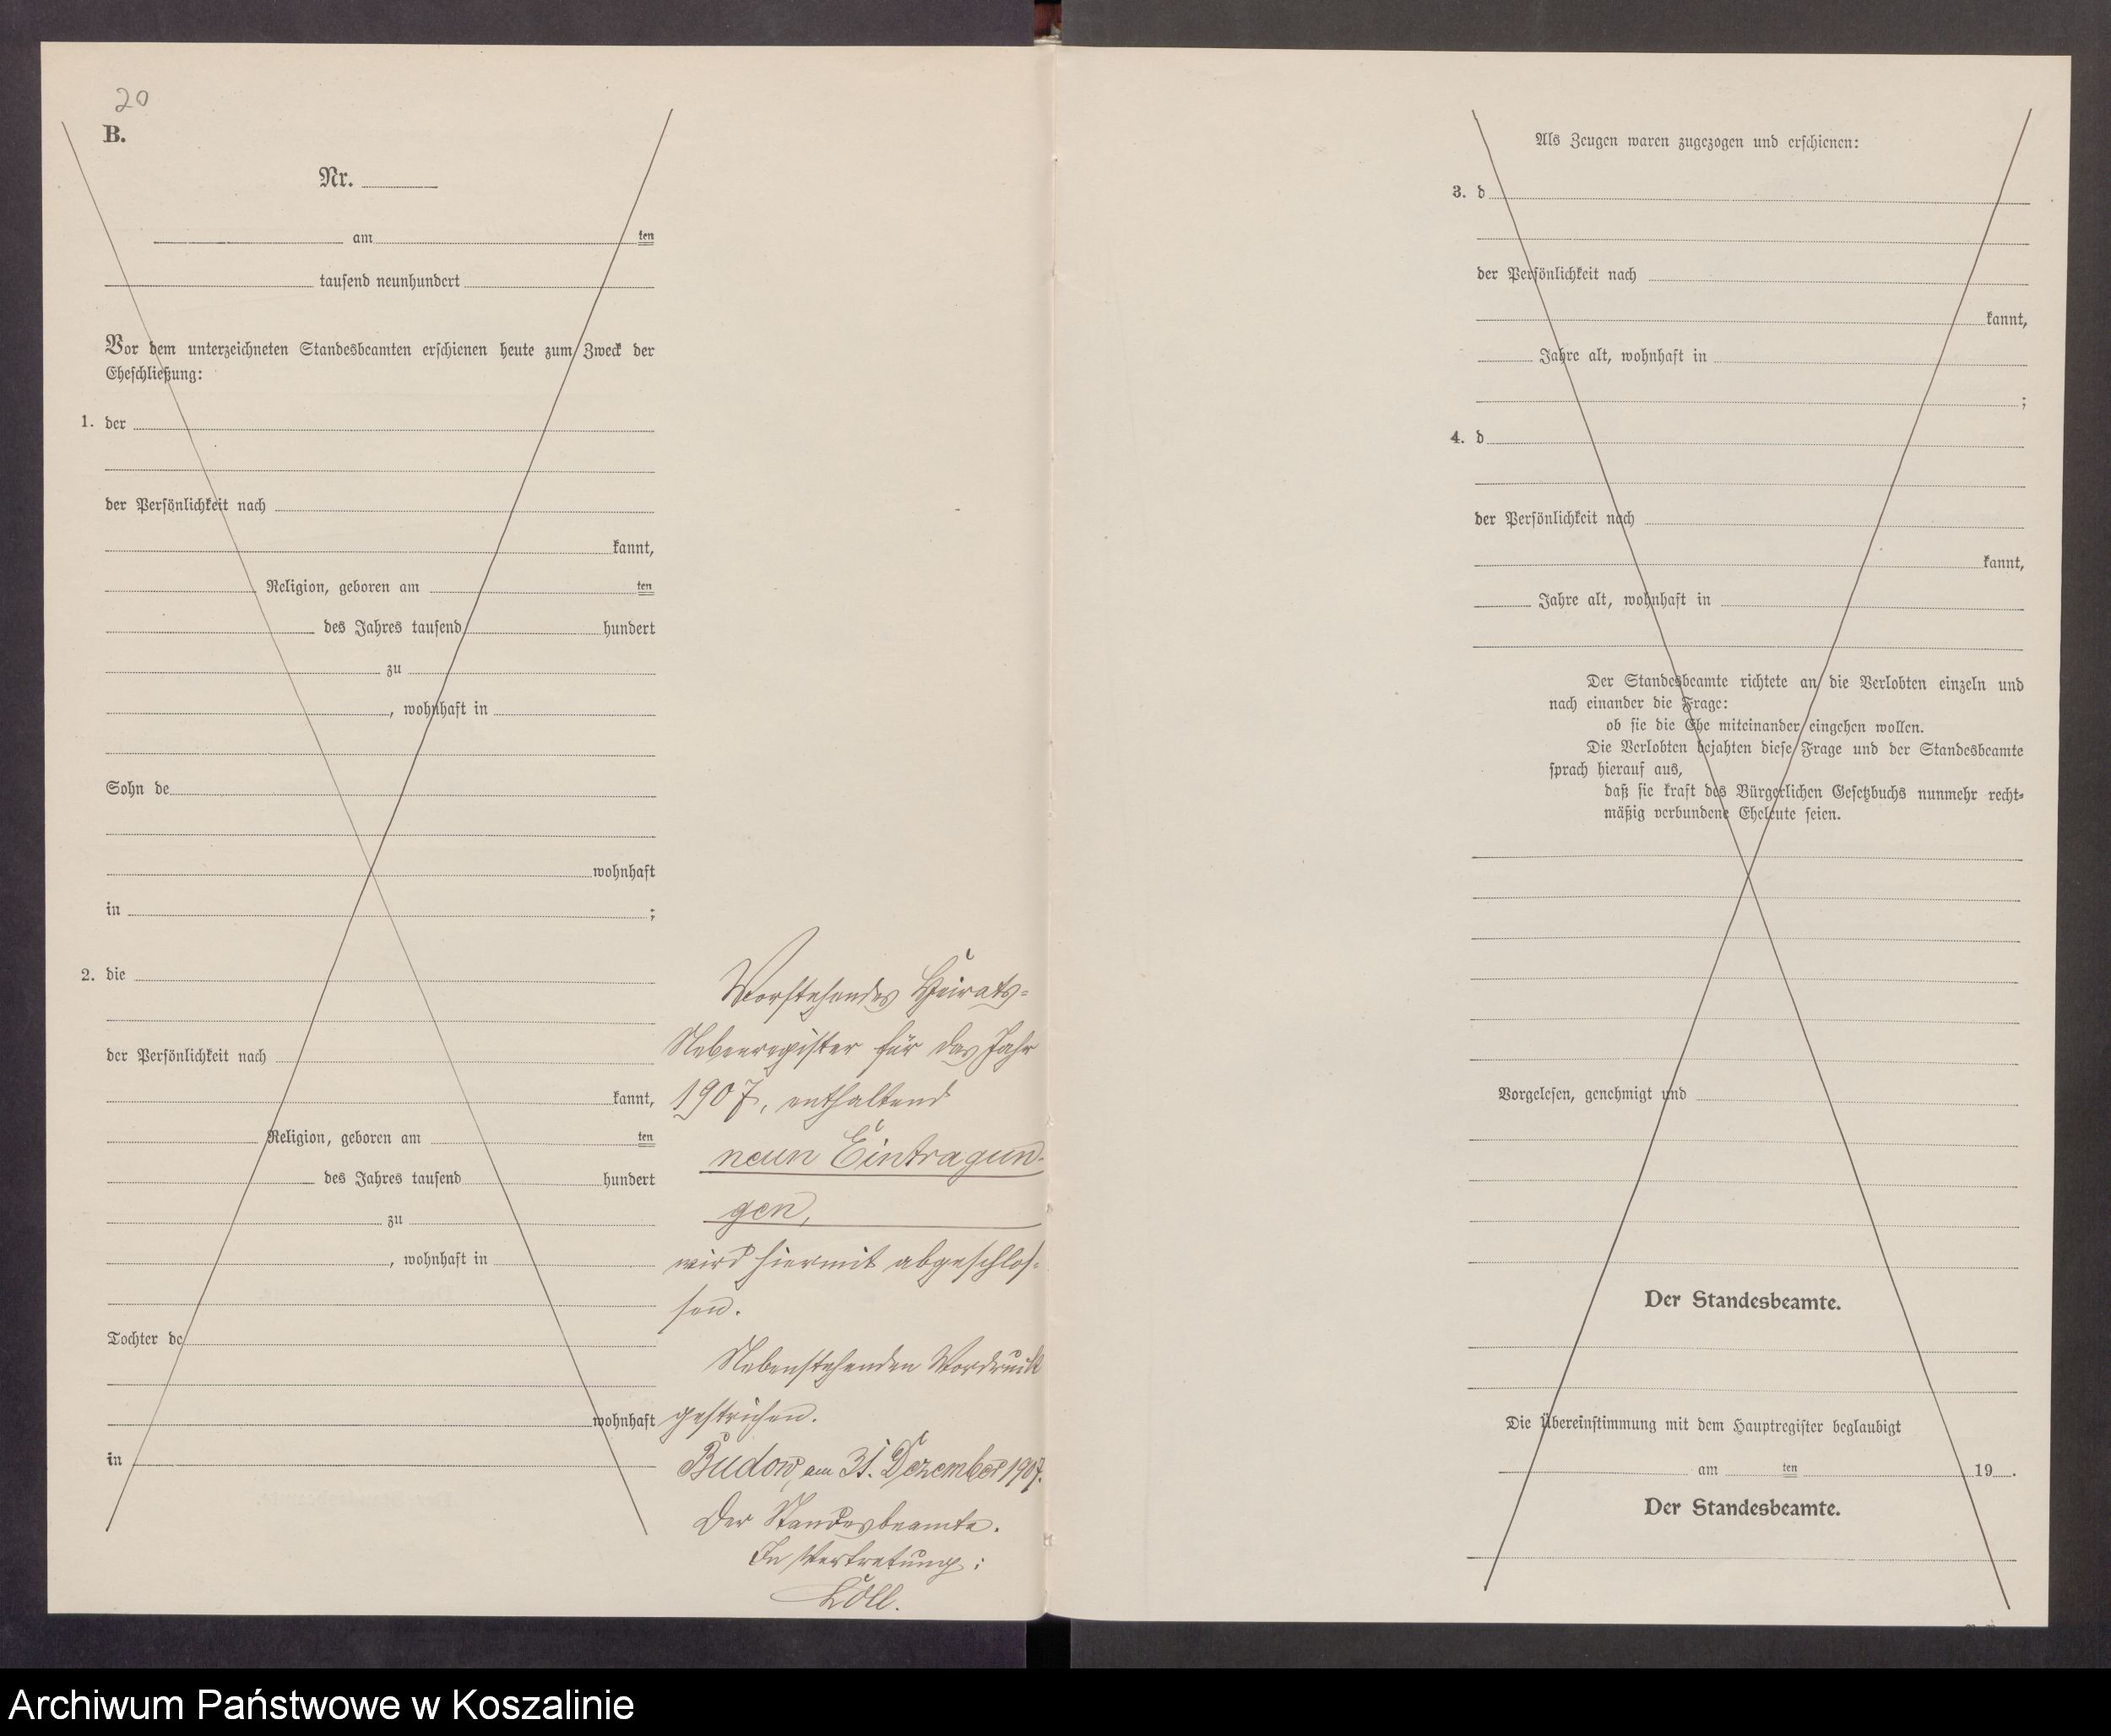 20
B.
Nr.
am ten
tausend neunhundert
Vor dem unterzeichneten Standesbeamten erschienen heute zum Zweck der
Eheschließung:
1. der
der Persönlichkeit nach
kannt,
Religion, geboren am ten
des Jahres tausend hundert
zu
, wohnhaft in
Sohn de
wohnhaft
in ;
2. die
der Persönlichkeit nach
kannt,
Religion, geboren am ten
des Jahres tausend hundert
zu
, wohnhaft in
Tochter de
wohnhaft
in
Vorstehendes Heirats-
Nebenregister für das Jahr
1907, enthaltend
neun Eintragun-
gen,
wird hiermit abgeschlos-
sen.
Nebenstehenden Vordruck
gestrichen.
Budow, am 31. Dezember 1907.
Der Standesbeamte.
In Vertretung:
Als Zeugen waren zugezogen und erschienen:
3. d
der Persönlichkeit nach
kannt,
Jahre alt, wohnhaft in
;
4. d
der Persönlichkeit nach
kannt,
Jahre alt, wohnhaft in
Der Standesbeamte richtete an die Verlobten einzeln und
nach einander die Frage:
ob sie die Ehe miteinander eingehen wollen.
Die Verlobten bejahten diese Frage und der Standesbeamte
sprach hierauf aus,
daß sie kraft des Bürgerlichen Gesetzbuchs nunmehr recht-
mäßig verbundene Eheleute seien.
Vorgelesen, genehmigt und
Der Standesbeamte.
Die Übereinstimmung mit dem Hauptregister beglaubigt
am ten 19 .
Der Standesbeamte.
Archiwum Państwowe w Koszalinie